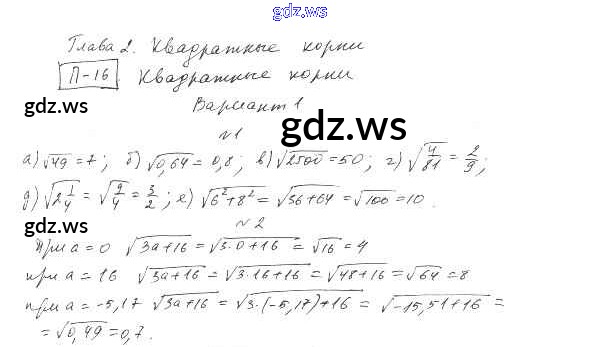 gdz.ws
Глава 2. Квадратные корни
П-16 Квадратные корни
gdz.ws
Вариант 1
gdz.ws
№1
а) √49 = 7; б) √0,64 = 0,8; в) √2500 = 50; г) √(4/81) = 2/9;
д) √(2 1/4) = √(9/4) = 3/2; е) √(6²+8²) = √(36+64) = √100 = 10.
№2
gdz.ws
при a = 0 √(3a+16) = √(3·0+16) = √16 = 4
при a = 16 √(3a+16) = √(3·16+16) = √(48+16) = √64 = 8
при a = -5,17 √(3a+16) = √(3·(-5,17)+16) = √(-15,51+16) =
= √0,49 = 0,7.
gdz.ws